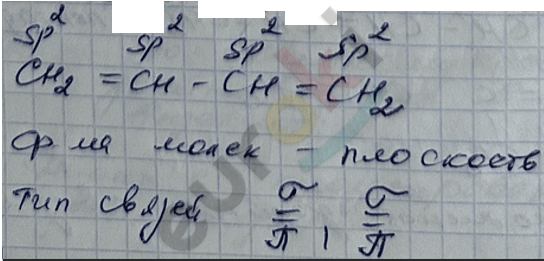 sp² sp² sp² sp²
CH₂ = CH - CH = CH₂
ф ма молек - плоскость
тип связей σ = π, σ = π